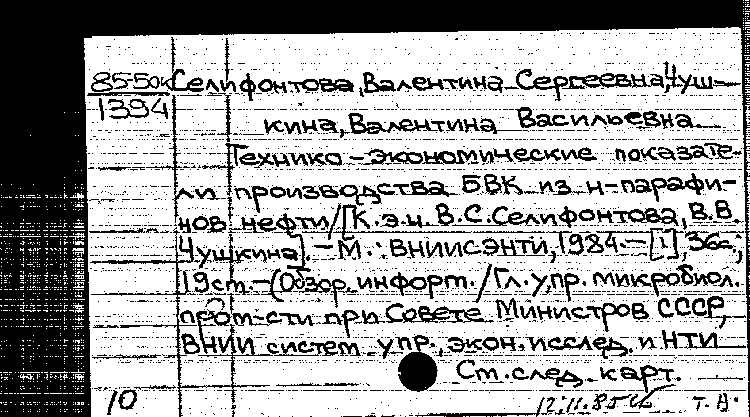 85-50к Селифонтова, Валентина Сергеевна, Чуш-
1394
кина, Валентина Васильевна.
Технико-экономические показате-
ли производства БВК из н-парафи-
нов нефти/[К.э.н. В.С. Селифонтова, В.В.
Чушкина]. - М.: ВНИИСЭНТИ, 1984. - [1], 36с.;
19см. - (Обзор. информ. / Гл. упр. микробиол.
пром-сти при Совете Министров СССР,
ВНИИ систем упр., экон. исслед. и НТИ
См. след. карт.
10
12.11.85
т. н.